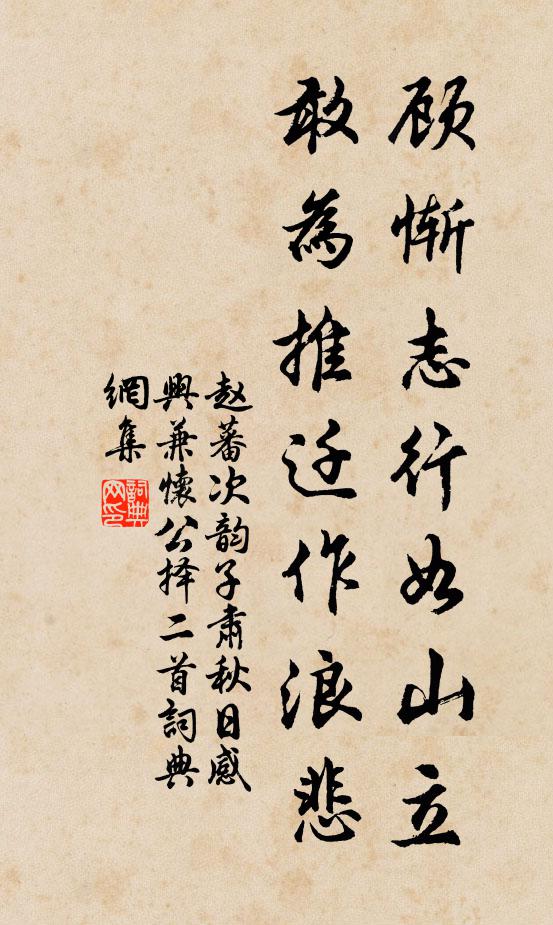 顾惭志行如山立
敢為推迁作浪悲
赵蕃次韵子肃秋日感
興兼懷公择二首詞典
網集
詞典
网印